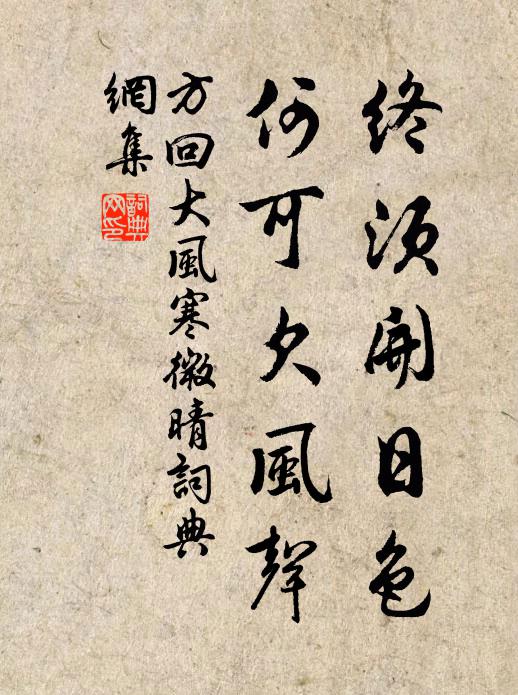 終須開日色
何可久風聲
方回大風寒微晴詞典
網集
詞典網印